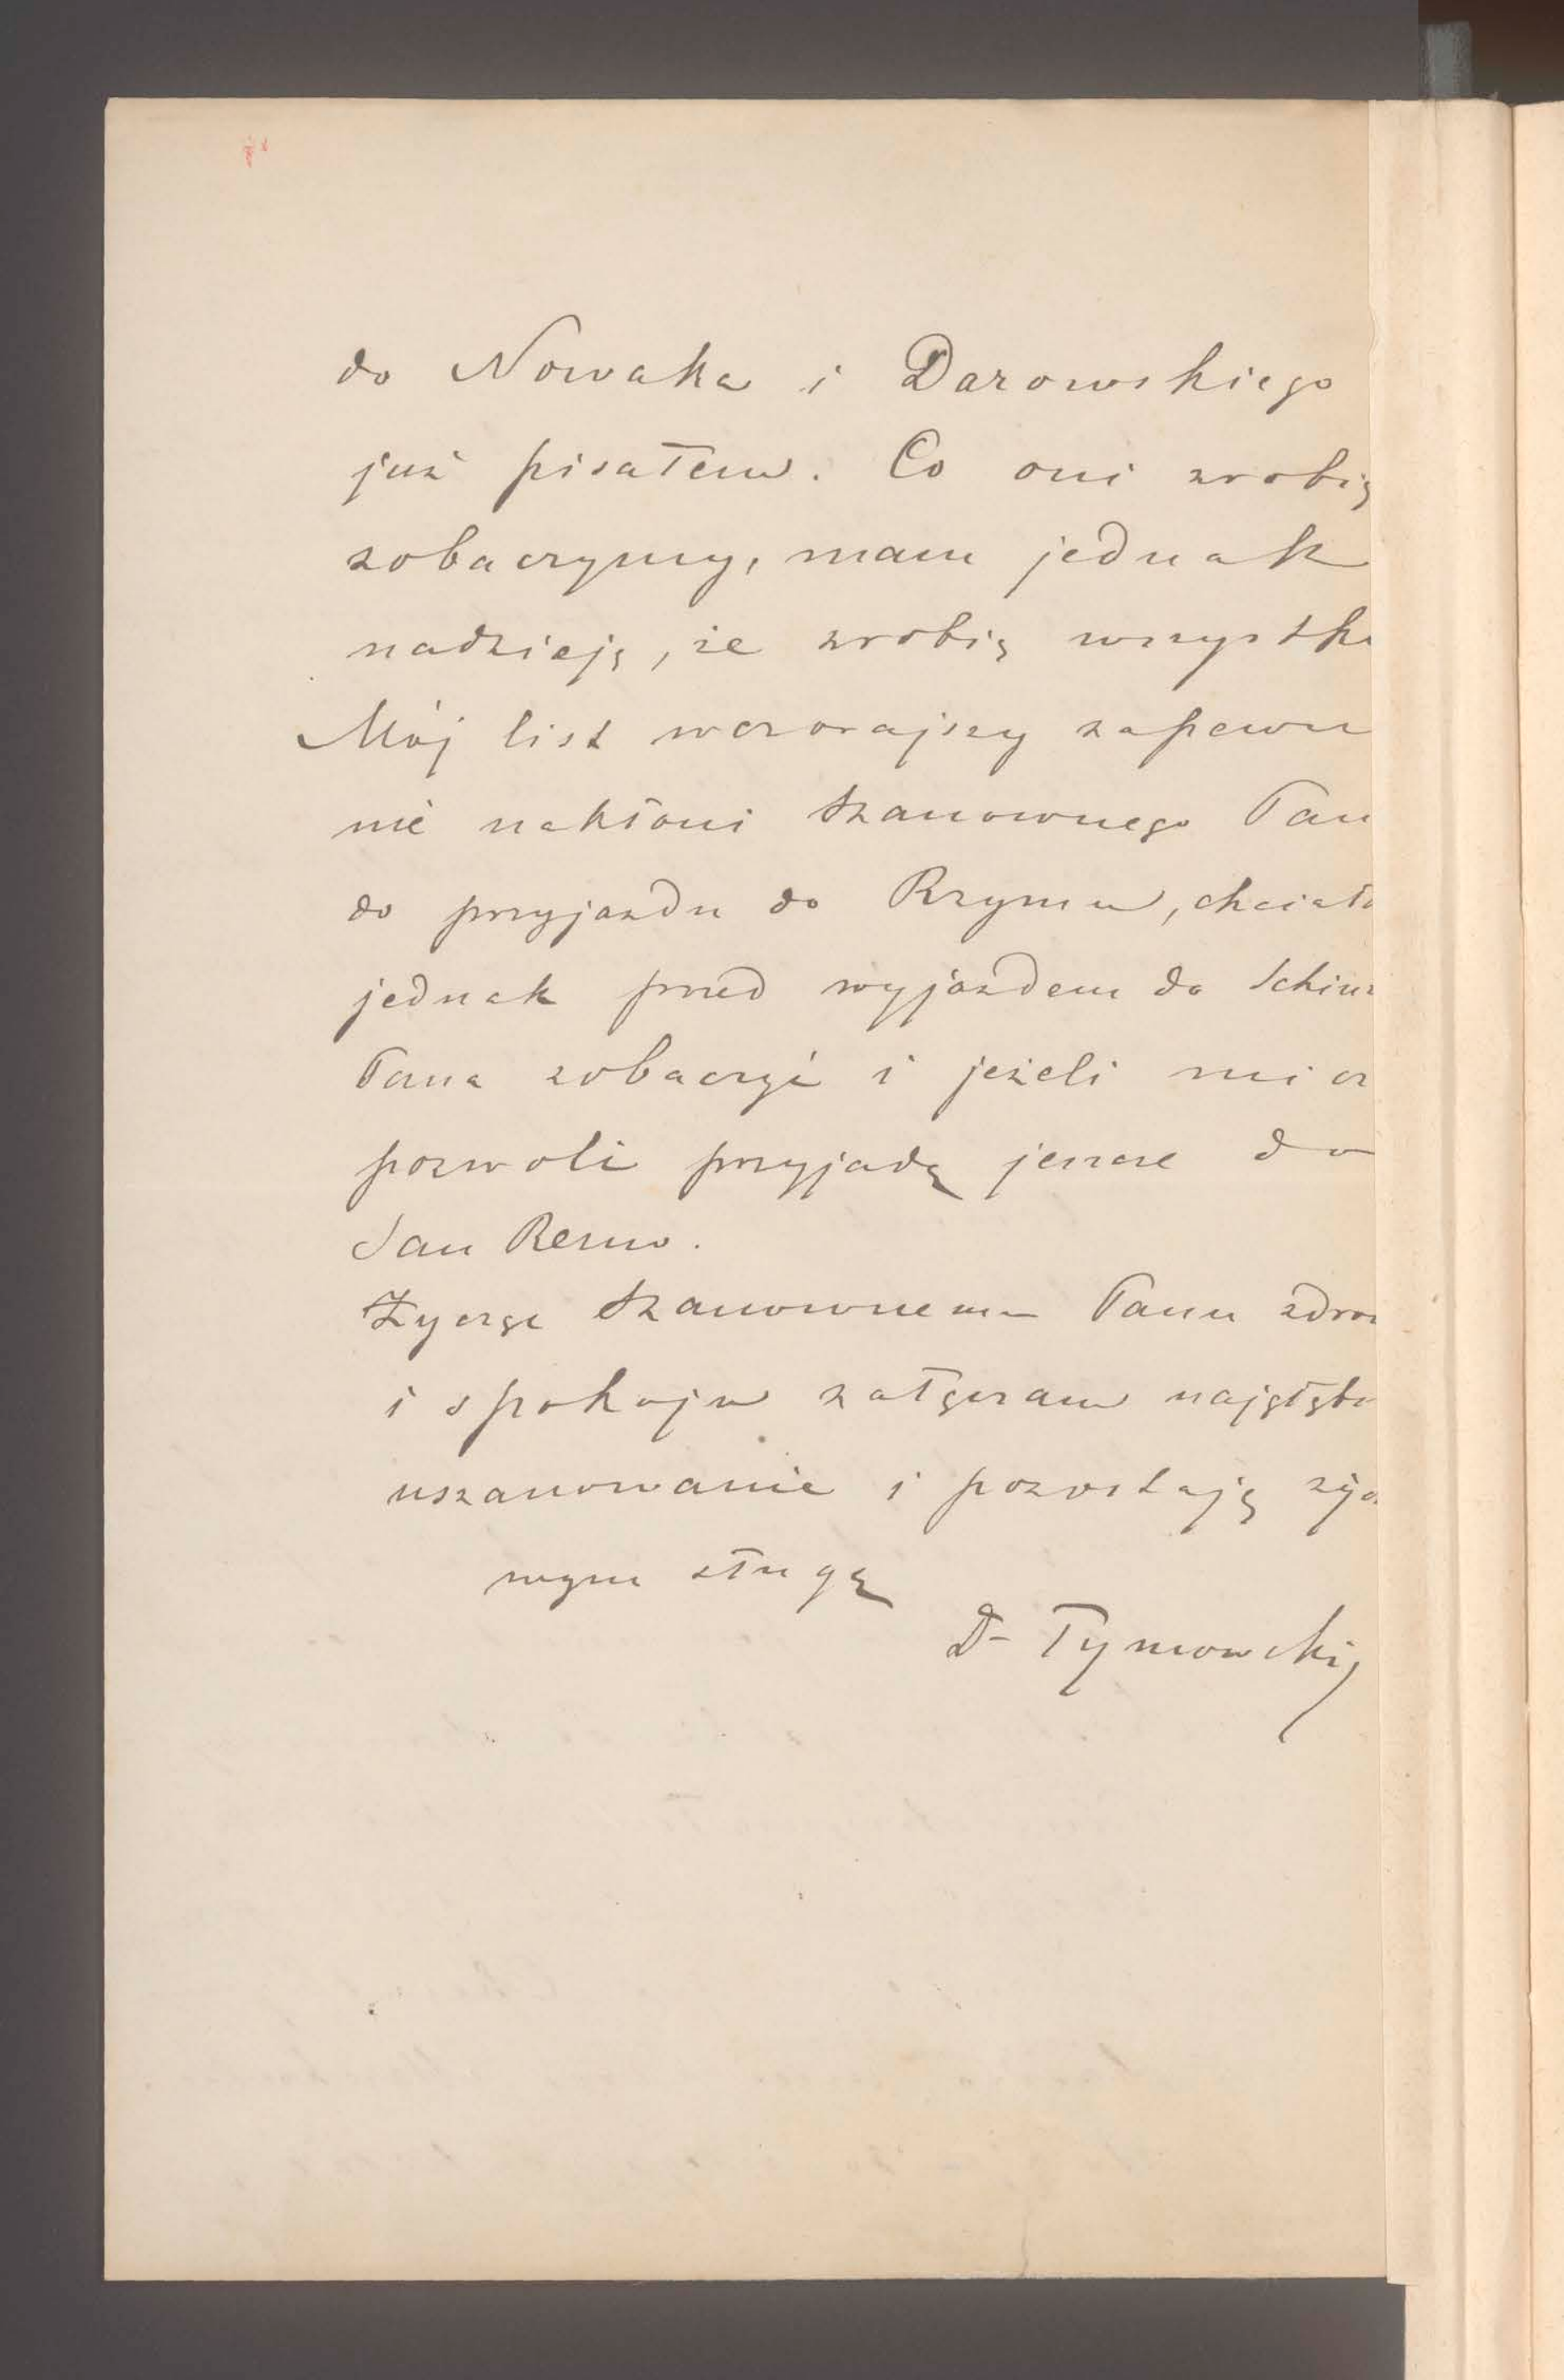 do Nowaka i Darowskiego
już pisałem. Co oni zrobią
zobaczymy, mam jednak
nadzieję, że zrobią wszystk
Mój list wczorajszy zapewn
nie nakłoni Szanownego Pan
do przyjazdu do Rzymu, chciał
jednak przed wyjazdem do Schin
Pana zobaczyć i jeżeli mi cz
pozwoli przyjadę jeszcze do
San Remo.
Życzę Szanownemu Panu zdro
i spokoju załączam najgłęb
uszanowanie i pozostaję życ
wym sługą
Dr Tymowski